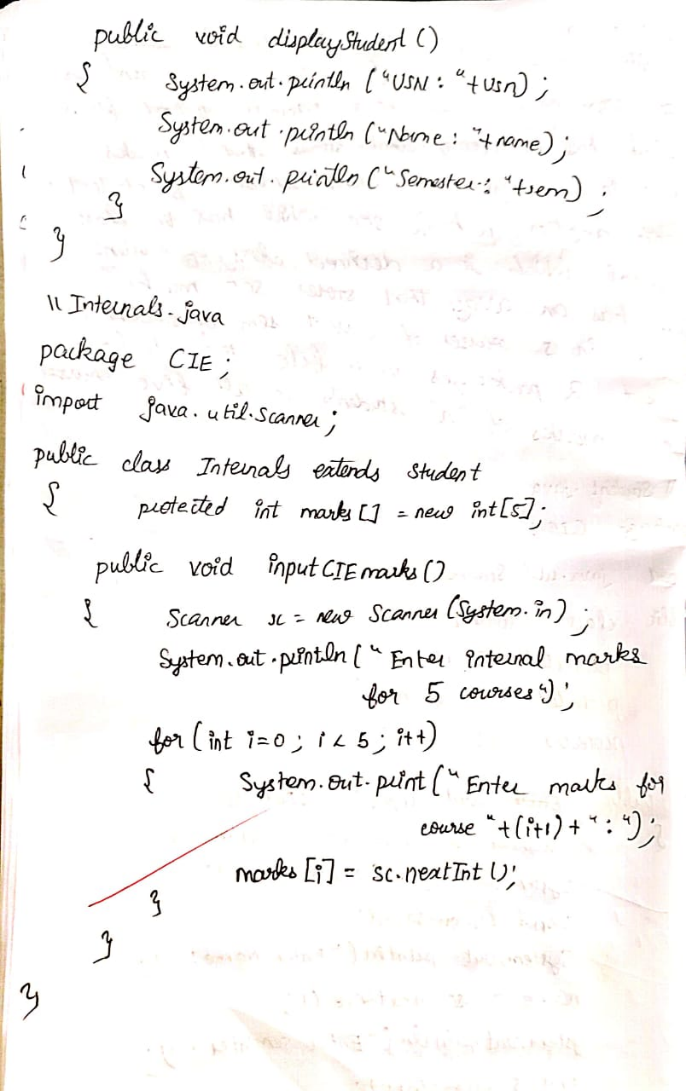 public void displayStudent ()
{ System.out.println ("USN : "+usn) ;
System.out.println ("Name : "+name);
System.out.println ("Semester : "+sem) ;
}
}
\\ Internals.java
package CIE ;
import java.util.Scanner ;
public class Internals extends Student
{ protected int marks [] = new int[5];
public void inputCIEmarks ()
{ Scanner sc = new Scanner (System.in) ;
System.out.println (" Enter internal marks
for 5 courses");
for (int i=0 ; i < 5 ; i++)
{ System.out.print (" Enter marks for
course "+(i+1) + " : ");
marks [i] = sc.nextInt ();
}
}
}